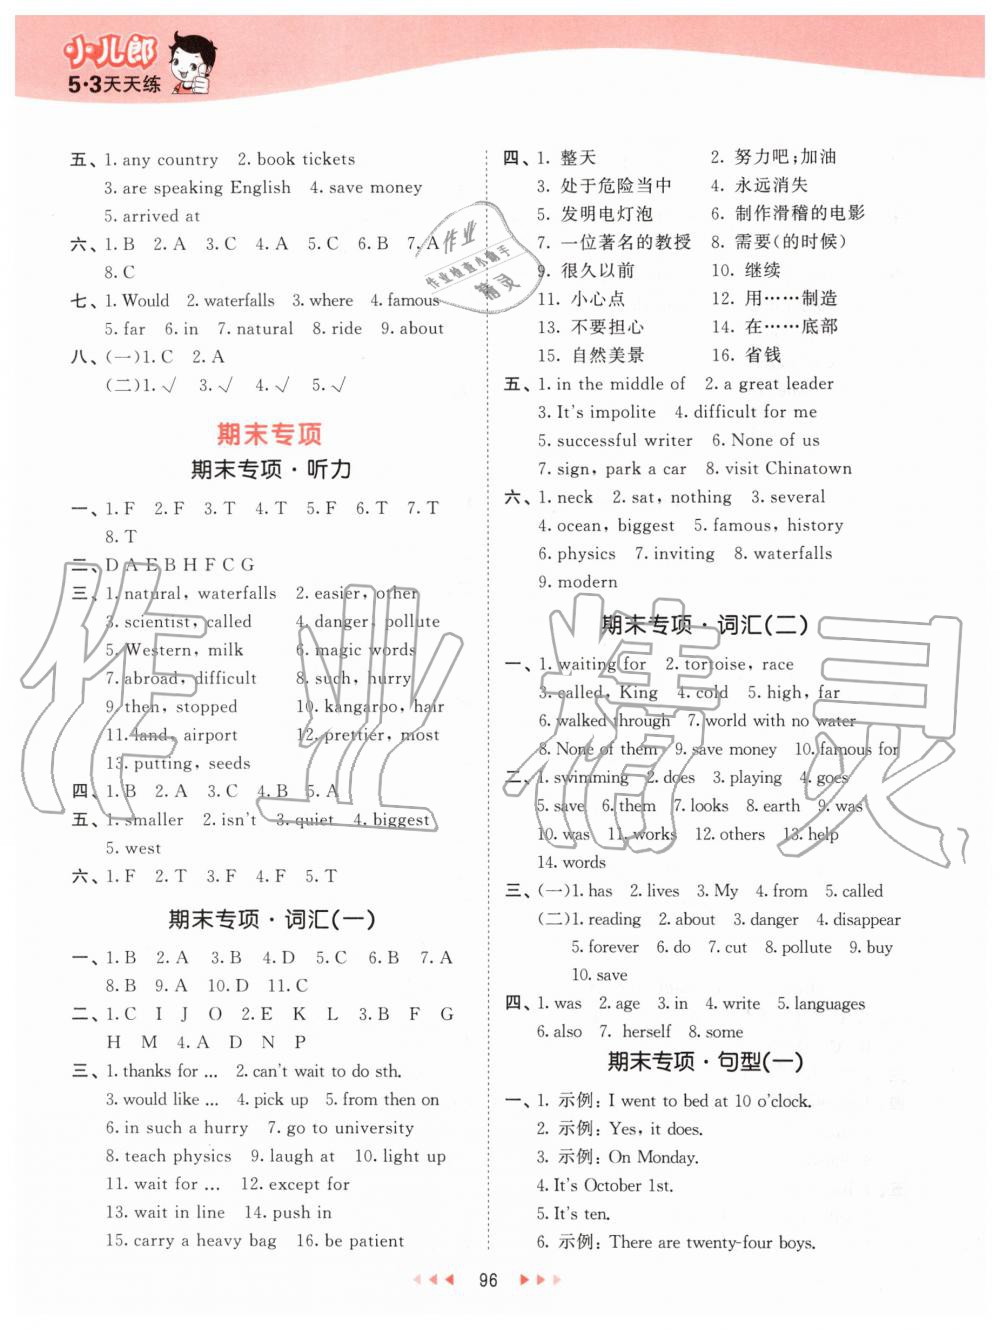 小儿郎
5·3天天练
五、1. any country 2. book tickets
3. are speaking English 4. save money
5. arrived at
六、1. B 2. A 3. C 4. A 5. C 6. B 7. A
8. C
七、1. Would 2. waterfalls 3. where 4. famous
5. far 6. in 7. natural 8. ride 9. about
八、(一)1. C 2. A
(二)1. √ 3. √ 4. √ 5. √
期末专项
期末专项·听力
一、1. F 2. F 3. T 4. T 5. F 6. T 7. T
8. T
二、D A E B H F C G
三、1. natural, waterfalls 2. easier, other
3. scientist, called 4. danger, pollute
5. Western, milk 6. magic words
7. abroad, difficult 8. such, hurry
9. then, stopped 10. kangaroo, hair
11. land, airport 12. prettier, most
13. putting, seeds
四、1. B 2. A 3. C 4. B 5. A
五、1. smaller 2. isn't 3. quiet 4. biggest
5. west
六、1. F 2. T 3. F 4. F 5. T
期末专项·词汇(一)
一、1. B 2. A 3. B 4. D 5. C 6. B 7. A
8. B 9. A 10. D 11. C
二、1. C I J O 2. E K L 3. B F G
H M 4. A D N P
三、1. thanks for ... 2. can't wait to do sth.
3. would like ... 4. pick up 5. from then on
6. in such a hurry 7. go to university
8. teach physics 9. laugh at 10. light up
11. wait for ... 12. except for
13. wait in line 14. push in
15. carry a heavy bag 16. be patient
四、1. 整天 2. 努力吧;加油
3. 处于危险当中 4. 永远消失
5. 发明电灯泡 6. 制作滑稽的电影
7. 一位著名的教授 8. 需要(的时候)
9. 很久以前 10. 继续
11. 小心点 12. 用……制造
13. 不要担心 14. 在……底部
15. 自然美景 16. 省钱
五、1. in the middle of 2. a great leader
3. It's impolite 4. difficult for me
5. successful writer 6. None of us
7. sign, park a car 8. visit Chinatown
六、1. neck 2. sat, nothing 3. several
4. ocean, biggest 5. famous, history
6. physics 7. inviting 8. waterfalls
9. modern
期末专项·词汇(二)
一、1. waiting for 2. tortoise, race
3. called, King 4. cold 5. high, far
6. walked through 7. world with no water
8. None of them 9. save money 10. famous for
二、1. swimming 2. does 3. playing 4. goes
5. save 6. them 7. looks 8. earth 9. was
10. was 11. works 12. others 13. help
14. words
三、(一)1. has 2. lives 3. My 4. from 5. called
(二)1. reading 2. about 3. danger 4. disappear
5. forever 6. do 7. cut 8. pollute 9. buy
10. save
四、1. was 2. age 3. in 4. write 5. languages
6. also 7. herself 8. some
期末专项·句型(一)
一、1. 示例: I went to bed at 10 o'clock.
2. 示例: Yes, it does.
3. 示例: On Monday.
4. It's October 1st.
5. It's ten.
6. 示例: There are twenty-four boys.
96
作业
作业检查小帮手
精灵
作业精灵